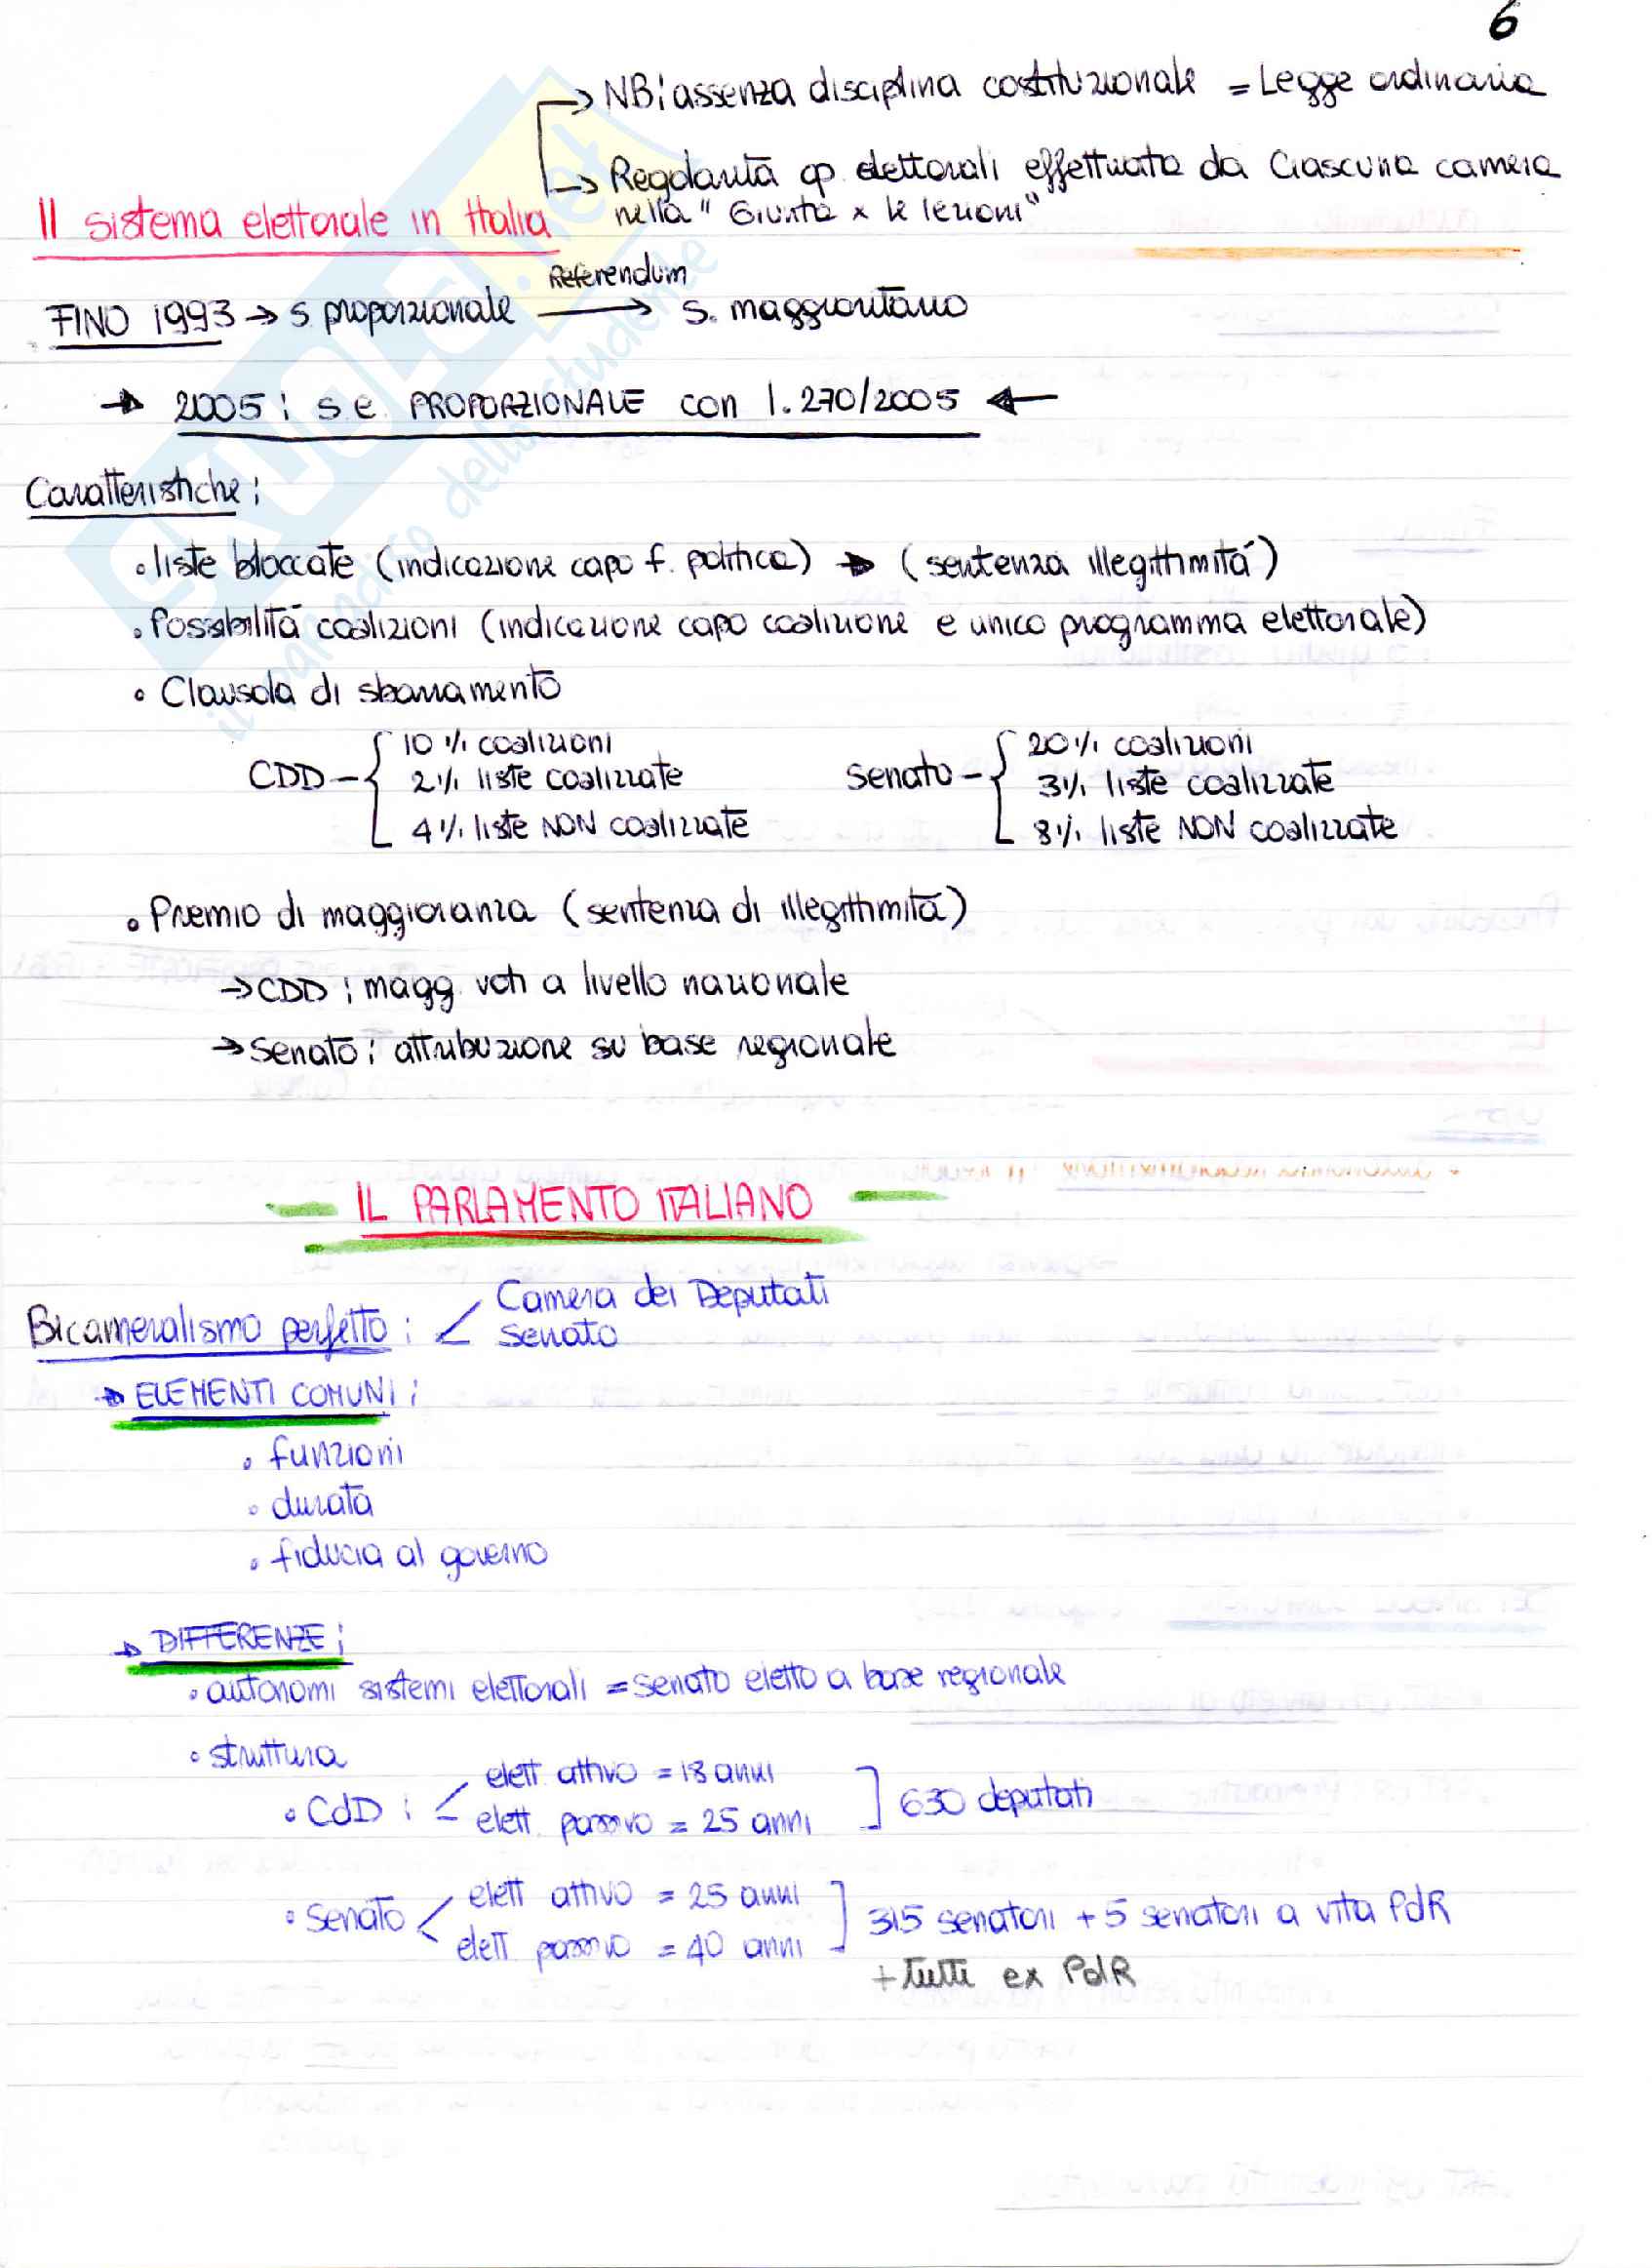 6
→ NB: assenza disciplina costituzionale = Legge ordinaria
→ Regolarità op elettorali effettuata da Ciascuna camera
nella "Giunta x le lezioni"
Il sistema elettorale in Italia
FINO 1993 → s proporzionale Referendum → s. maggioritario
→ 2005: s e PROPORZIONALE con l. 270/2005 ←
Caratteristiche:
• liste bloccate (indicazione capo f. politica) → (sentenza illegittimità)
• Possibilità coalizioni (indicazione capo coalizione e unico programma elettorale)
• Clausola di sbarramento
CDD – { 10 % coalizioni
2% liste coalizzate
4% liste NON coalizzate
Senato – { 20% coalizioni
3% liste coalizzate
8% liste NON coalizzate
• Premio di maggioranza (sentenza di illegittimità)
→ CDD: magg. voti a livello nazionale
→ Senato: attribuzione su base regionale
IL PARLAMENTO ITALIANO
Bicameralismo perfetto: < Camera dei Deputati
Senato
→ ELEMENTI COMUNI:
• funzioni
• durata
• fiducia al governo
→ DIFFERENZE:
• autonomi sistemi elettorali = Senato eletto a base regionale
• struttura
• CdD: < elett. attivo = 18 anni
elett. passivo = 25 anni ] 630 deputati
• Senato < elett attivo = 25 anni
elett passivo = 40 anni ] 315 senatori + 5 senatori a vita PdR
+ tutti ex PdR
SKUOLA.net
il paradiso dello studente